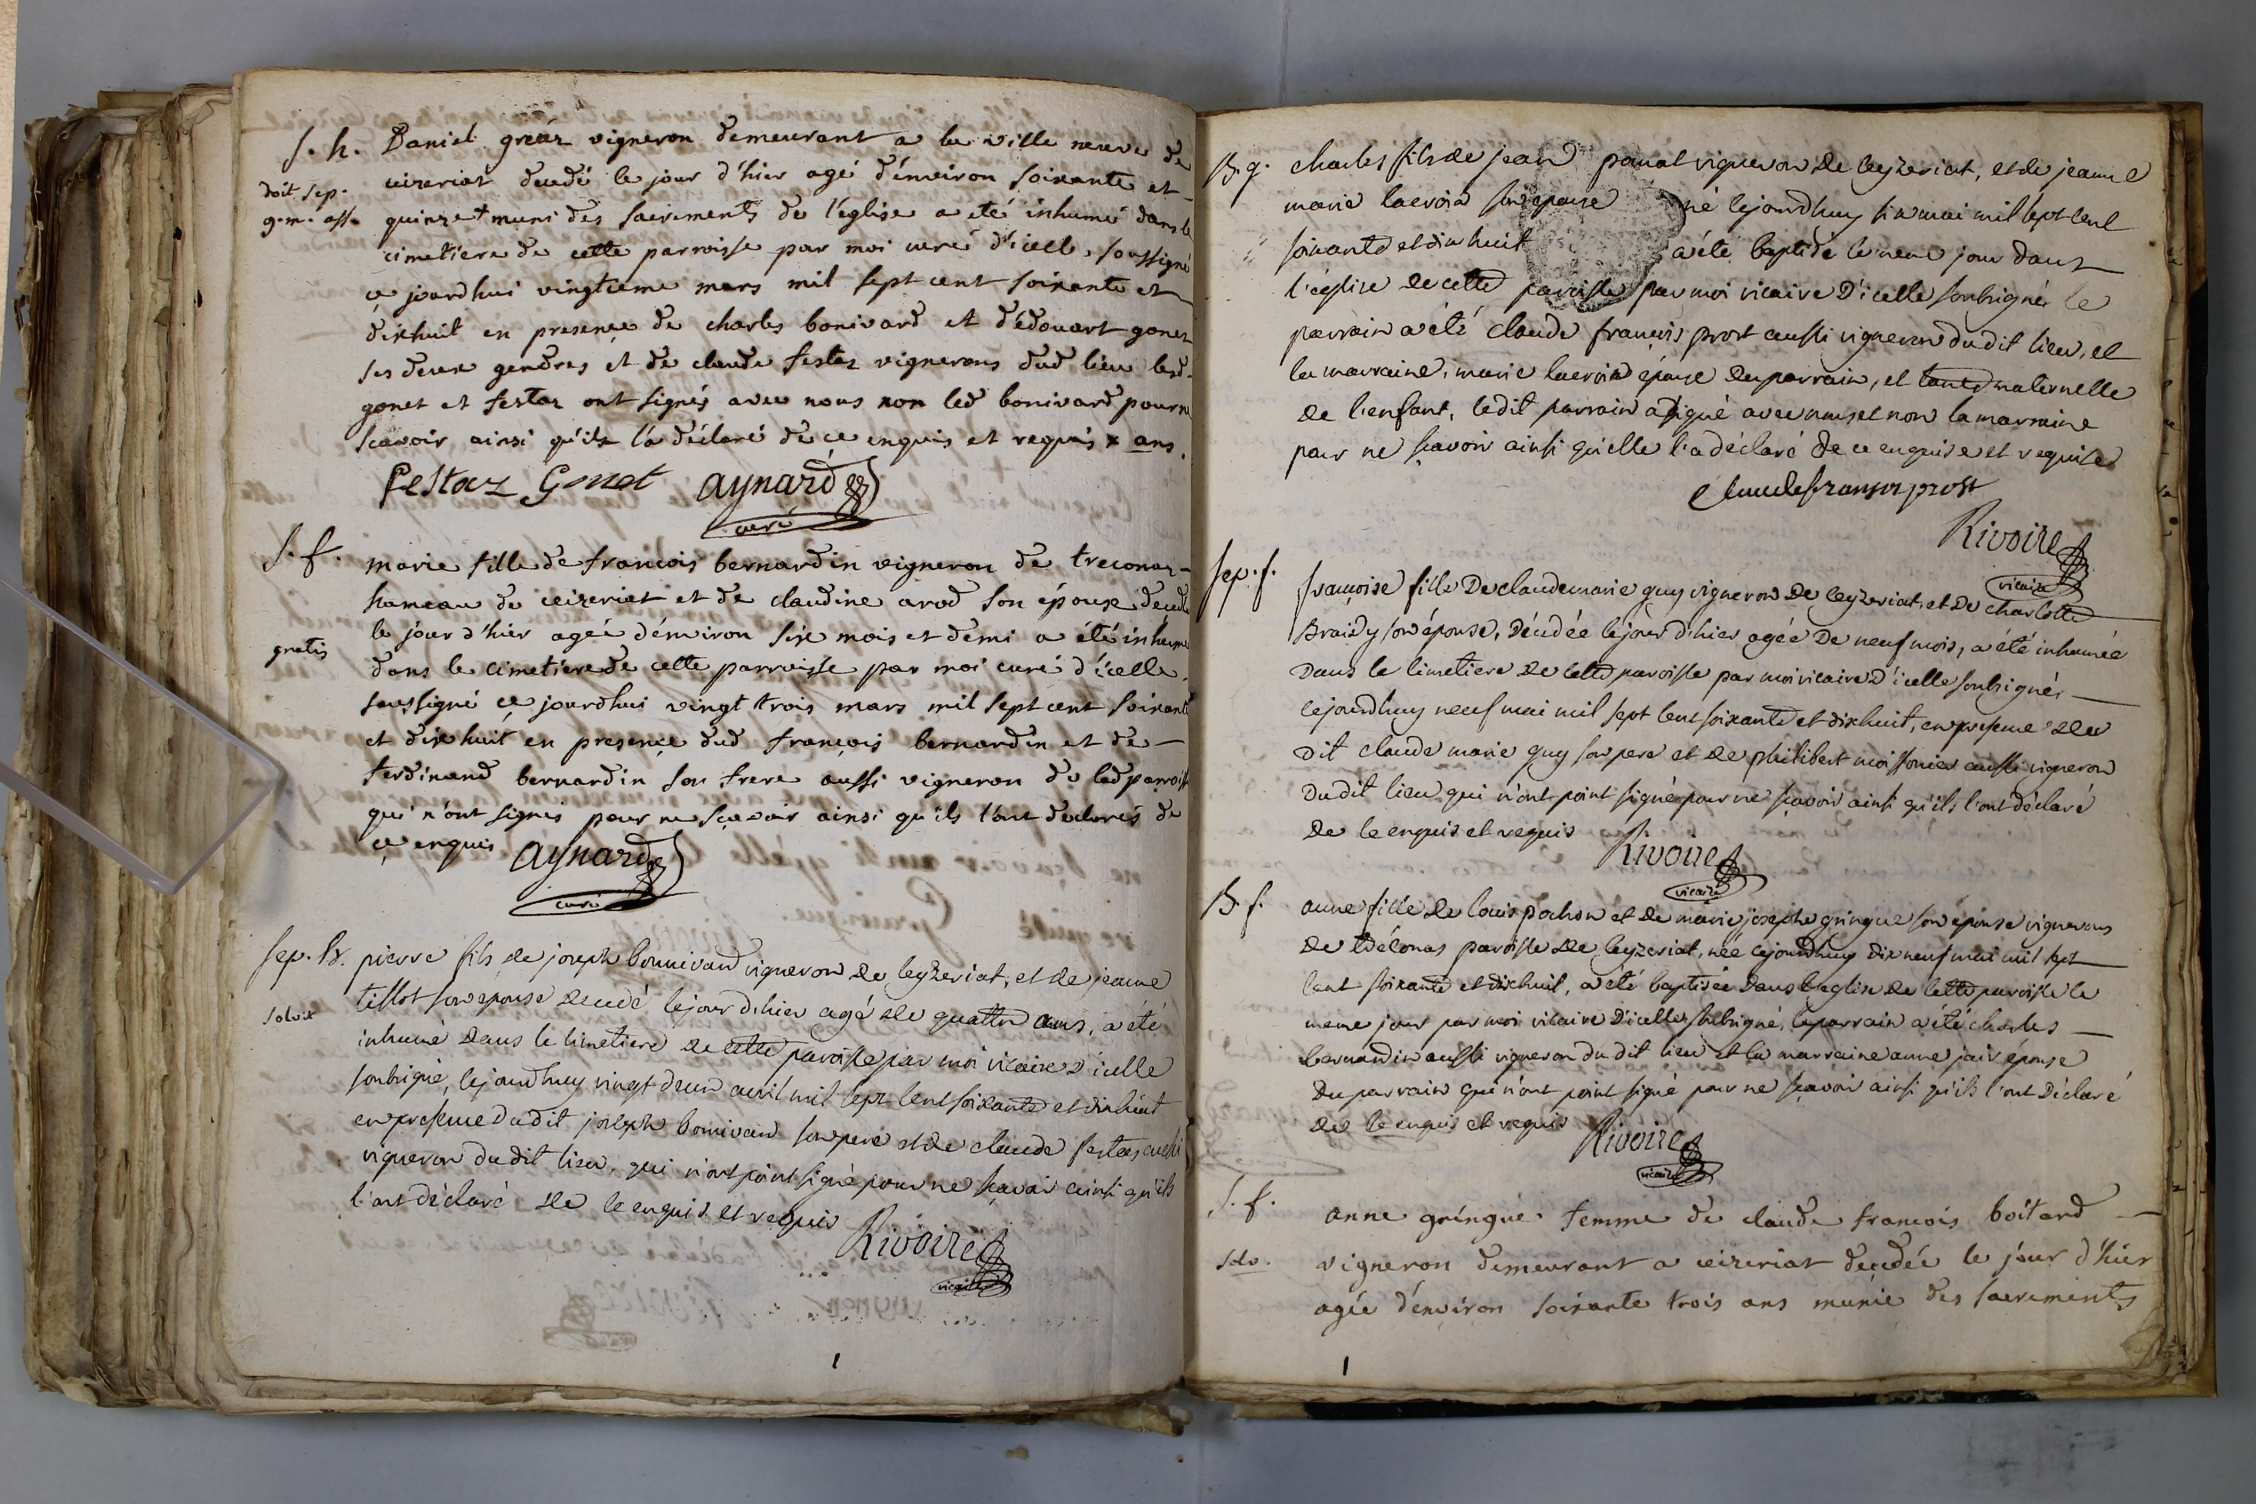 s. h. Daniel greaz vigneron demeurant a la ville neuve de
doit sep. ceizeriat decedé le jour d'hier agé d'environ soixante et
g. m. ass. quinze + muni des sacrements de l'église a eté inhumé dans le
cimetiere de cette parroisse par moi curé d'icelle, soussigné
ce jourdhui vingtieme mars mil sept cent soixante et
dixhuit en presençe de charles bonivard et d'édouart gonet
ses deux gendres et de claude festaz vignerons dud lieu lesd.
gonet et festaz ont signés avec nous non led bonivard pour ne
scavoir ainsi qu'ils l'a déclaré de ce enquis et requis x ans.
festaz Gonet aynard
curé
s. f. marie fille de francois bernardin vigneron de treconaz
hameau de ceizeriat et de claudine arod son épouse decedée
le jour d'hier agée d'environ six mois et demi a été inhumée
gratis dans le cimetiere de cette parroisse par moi curé d'icelle
soussigné ce jourdhui vingt trois mars mil sept cent soixante
et dix huit en presençe dud francois bernardin et de
ferdinand bernardin son frere aussi vigneron de lad parroisse
qui n'ont signés pour ne scavoir ainsi qu'ils l'ont declarés de
ce enquis aynard
curé
sep. pierre fils de joseph bonnivard vigneron de ceyzeriat, et de jeanne
tissot son epouse decedé le jour d'hier agé de quattre ans, a été
solvit inhumé dans le cimetiere de cette paroisse par moi vicaire d'icelle
soubsigné, cejourdhuy vingt deux avril mil sept cent soixante et dix huit
en presence dudit joseph bonnivard son pere et de claude festaz aussi
vigneron dudit lieu, qui n'ont point signé pour ne sçavoir ainsi qu'ils
l'ont déclaré de ce enquis et requis Rivoire
vicaire
1
B. g. charles fils de jean panat vigneron de ceyzeriat, et de jeanne
marie lacroix son epouse né cejourdhuy six mai mil sept cent
soixante et dix huit a été baptisé le meme jour dans
l'église de cette paroisse par moi vicaire d'icelle soubsigné, le
parrain a été claude françois prost aussi vigneron dudit lieu, et
la marraine, marie lacroix épouse du parrain, et tante maternelle
de l'enfant, ledit parrain a signé avec nous et non la marraine
pour ne sçavoir ainsi qu'elle l'a déclaré de ce enquise et requise
claudefransois prost
Rivoire
vicaire
sep. f. françoise fille de claudemarie guy vigneron de ceyzeriat, et de charlotte
Braidy son épouse, décédée le jour d'hier agée de neuf mois, a été inhumée
dans le cimetiere de cette paroisse par moi vicaire d'icelle soubsigné,
cejourdhuy neuf mai mil sept cent soixante et dixhuit, en presence du
dit claude marie guy son pere et de philibert moissonier aussi vigneron
dudit lieu qui n'ont point signé pour ne sçavoir ainsi qu'ils l'ont déclaré
de ce enquis et requis Rivoire
vicaire
B. f. anne fille de louis pochon et de marie josephe gringue son epouse vignerons
de paroisse de ceyzeriat, née cejourdhuy dix neuf mai mil sept
cent soixante et dixhuit, a été baptisée dans l'eglise de cette paroisse le
meme jour par moi vicaire d'icelle soubsigné, le parrain a été charles
bernardin aussi vigneron du dit lieu et la marraine anne jair épouse
du parrain qui n'ont point signé pour ne sçavoir ainsi qu'ils l'ont déclaré
de ce enquis et requis Rivoire
vicaire
s. f. anne gringue femme de claude francois boitard
solv. vigneron demeurant a ceizeriat decedée le jour d'hier
agée d'environ soixante trois ans munie des sacrements
1